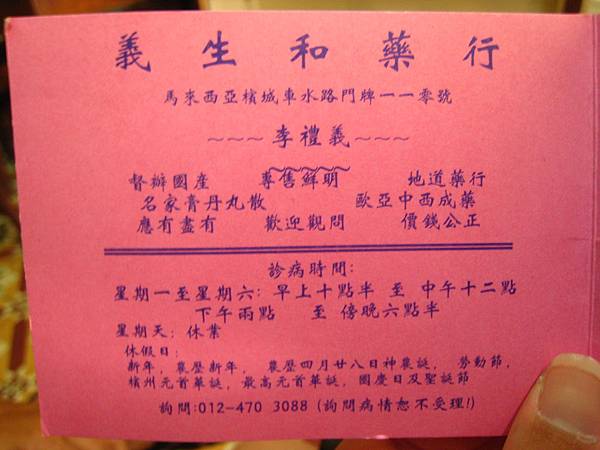 義生和藥行
馬來西亞檳城車水路門牌一一零號
~~~李禮義~~~
督辦國產 專售鮮明 地道藥行
名家膏丹丸散 歐亞中西成藥
應有盡有 歡迎觀問 價錢公正
診病時間:
星期一至星期六: 早上十點半 至 中午十二點
下午兩點 至 傍晚六點半
星期天: 休業
休假日:
新年, 農歷新年, 農歷四月廿八日神農誕, 勞動節,
檳州元首華誕, 最高元首華誕, 國慶日及聖誕節
詢問:012-470 3088 (詢問病情恕不受理!)